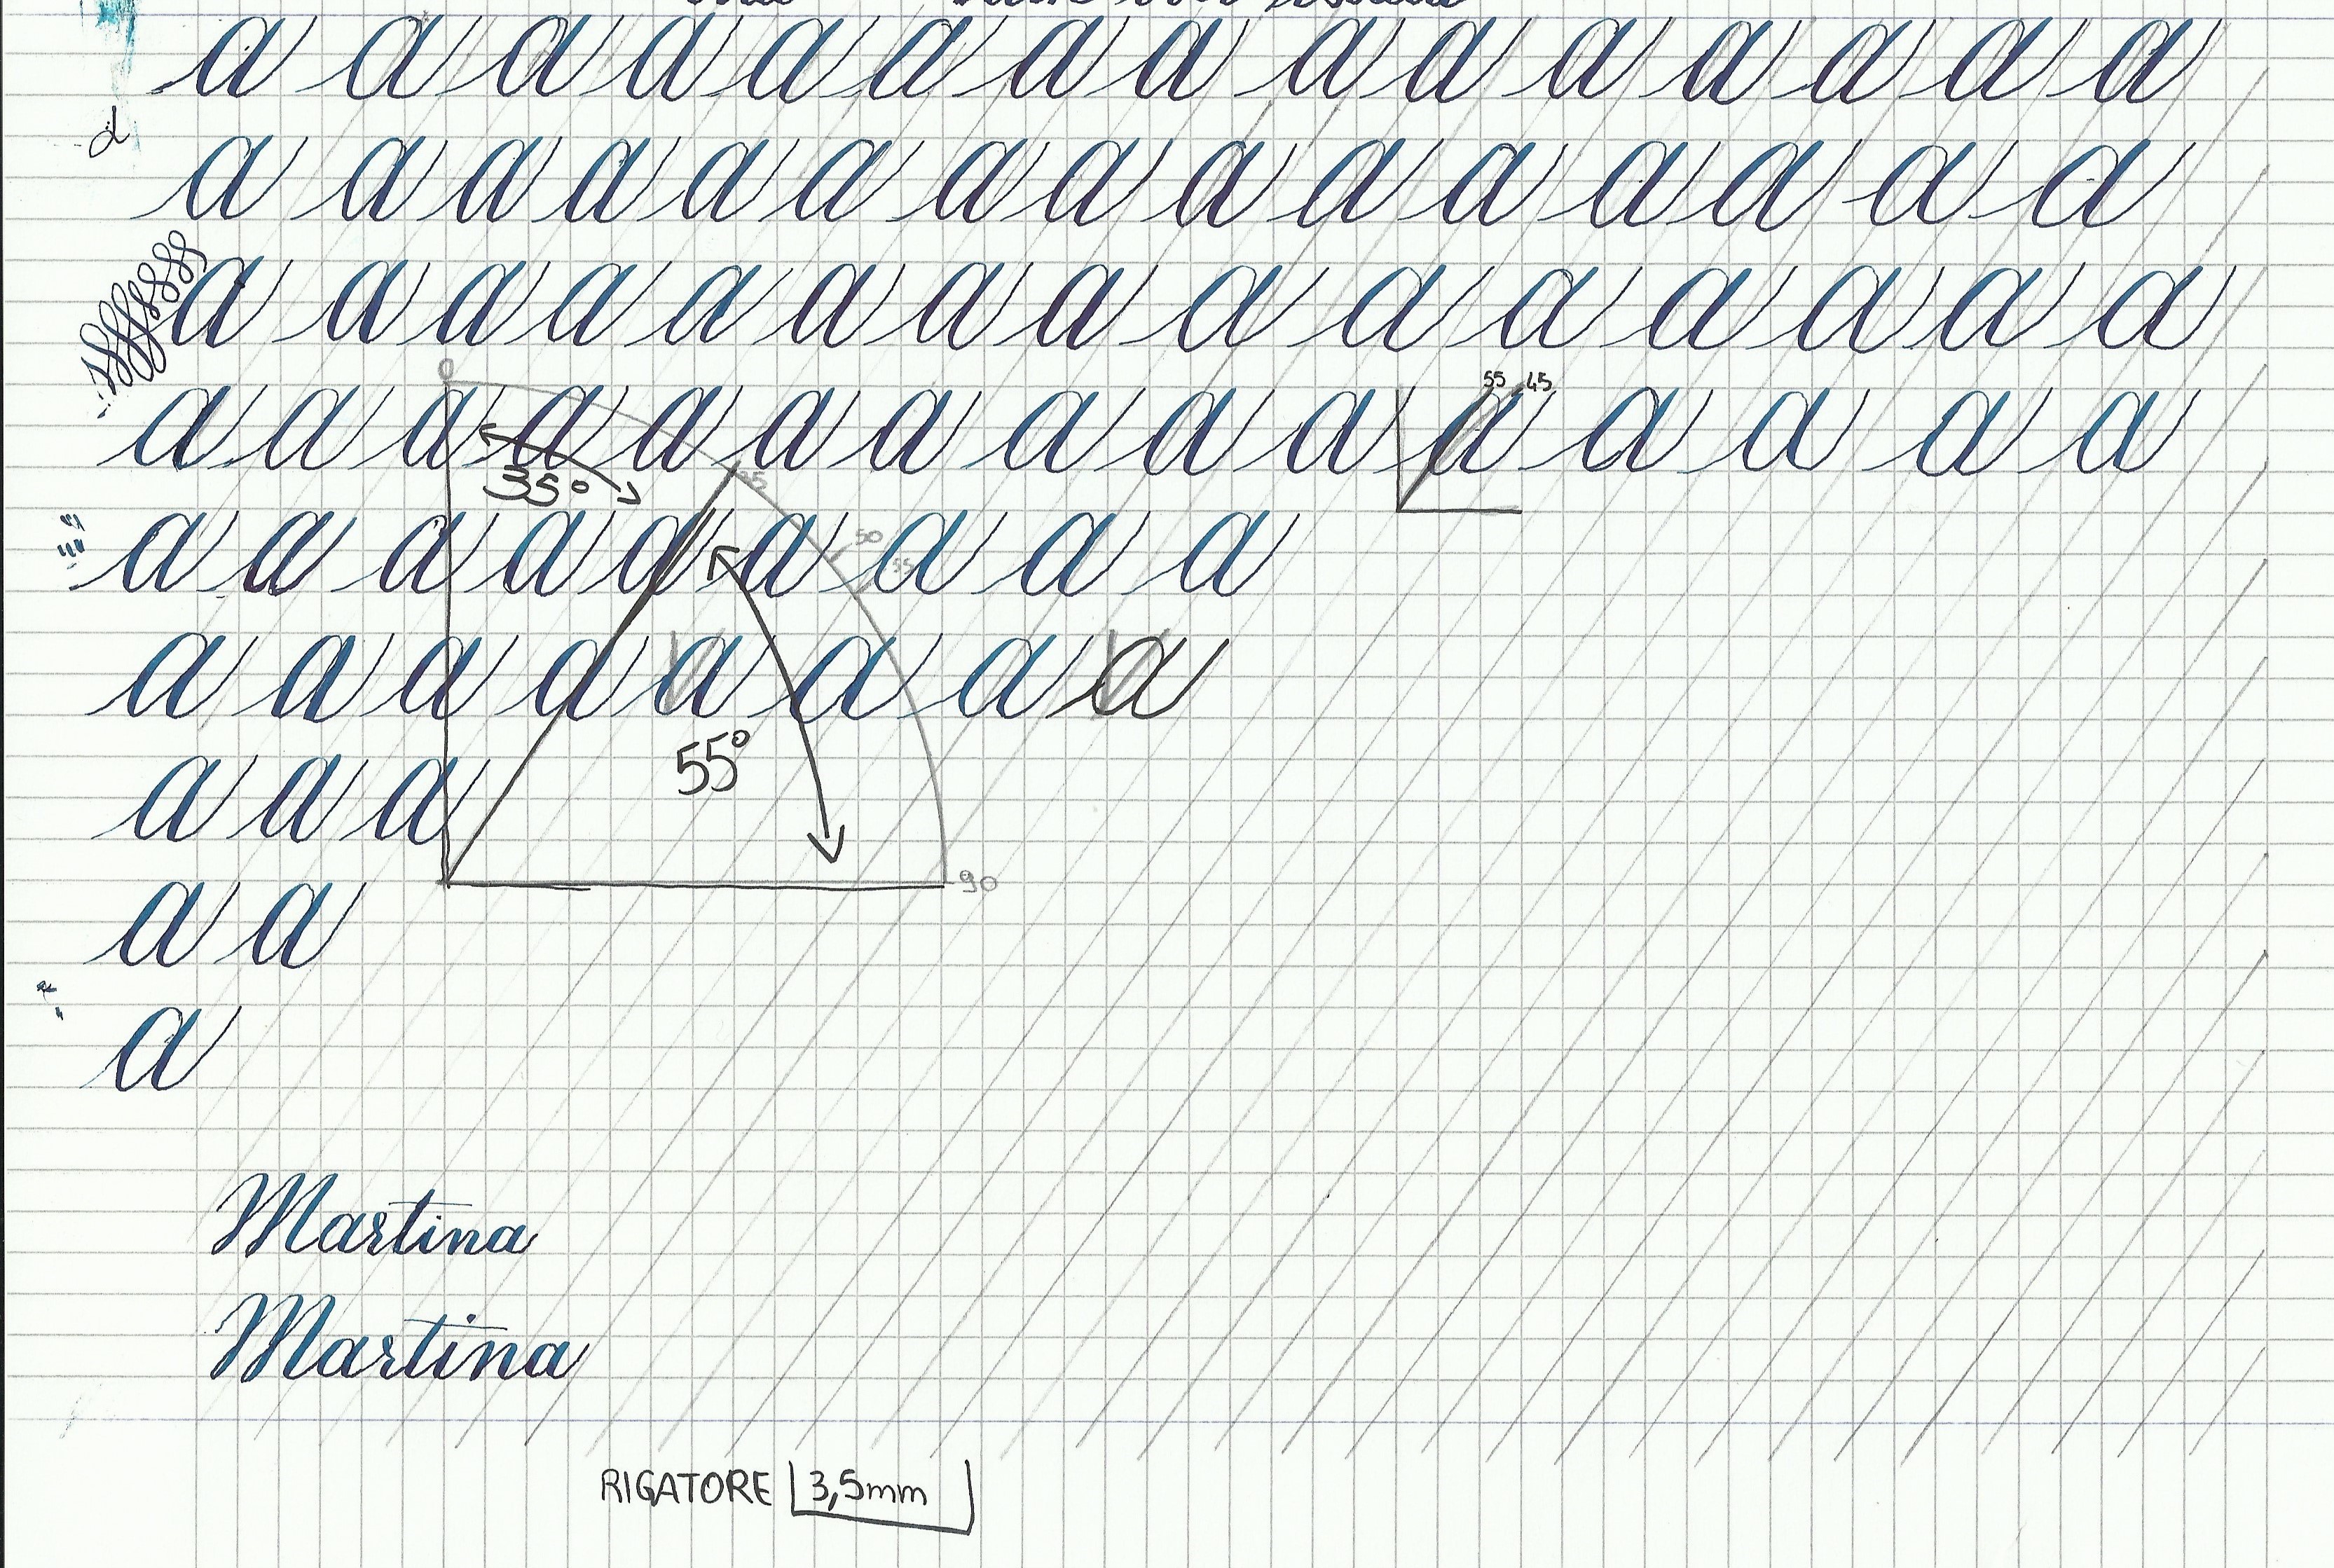 a a a a a a a a a a a a a a a
a a a a a a a a a a a a a a a
a a a a a a a a a a a a a a a
0
55 45
a a a a a a a a a a a a a a a
35°
35
a a a a a a a a a
50
55
a a a a a a a a
55°
a a a
90
a a
a
Martina
Martina
RIGATORE 3,5mm